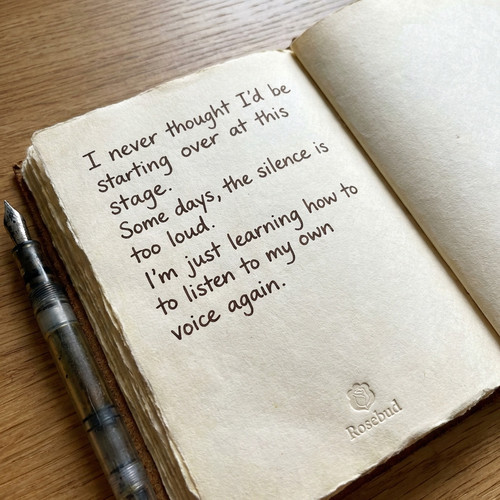 I never thought I'd be
starting over at this
stage.
Some days, the silence is
too loud.
I'm just learning how to
to listen to my own
voice again.
Rosebud